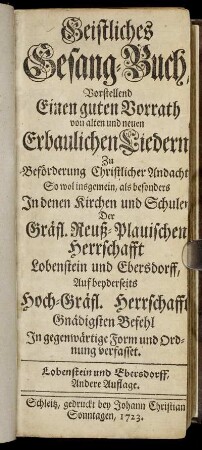 Geistliches
Gesang-Buch,
Vorstellend
Einen guten Vorrath
von alten und neuen
Erbaulichen Liedern
Zu
Beförderung Christlicher Andacht
So wol insgemein, als besonders
In denen Kirchen und Schulen
Der
Gräfl. Reuß-Plauischen
Herrschafft
Lobenstein und Ebersdorff,
Auf beyderseits
Hoch-Gräfl. Herrschafft
Gnädigsten Befehl
In gegenwärtige Form und Ord-
nung verfasset.
Lobenstein und Ebersdorff.
Andere Auflage.
Schleitz, gedruckt bey Johann Christian
Sonntagen, 1723.